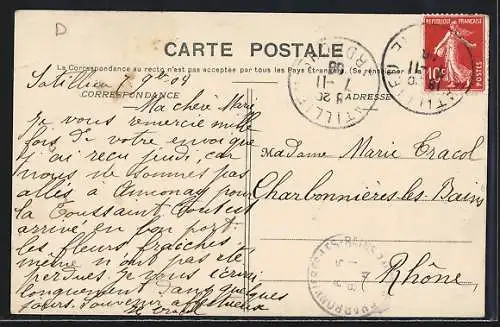 D
CARTE POSTALE
La Correspondance au recto n'est pas acceptée par tous les Pays Étrangers. (Se renseigner à la
CORRESPONDANCE
ADRESSE
RÉPUBLIQUE FRANÇAISE
10c
POSTES
Satillieu 7 9bre
Ma chère Marie
Je vous remercie mille
fois de votre envoi que
j'ai reçu jeudi, car
nous ne sommes pas
allés à Annonay pour
la Toussaint tout est
arrivé en bon port
les fleurs fraîches
même n'ont pas été
perdues. Je vous écrirai
longuement dans quelques
jours. Souvenir affectueux
Madame Marie Tracol
Charbonnières-les-Bains
Rhône
SATILLIEU
7 -11
08